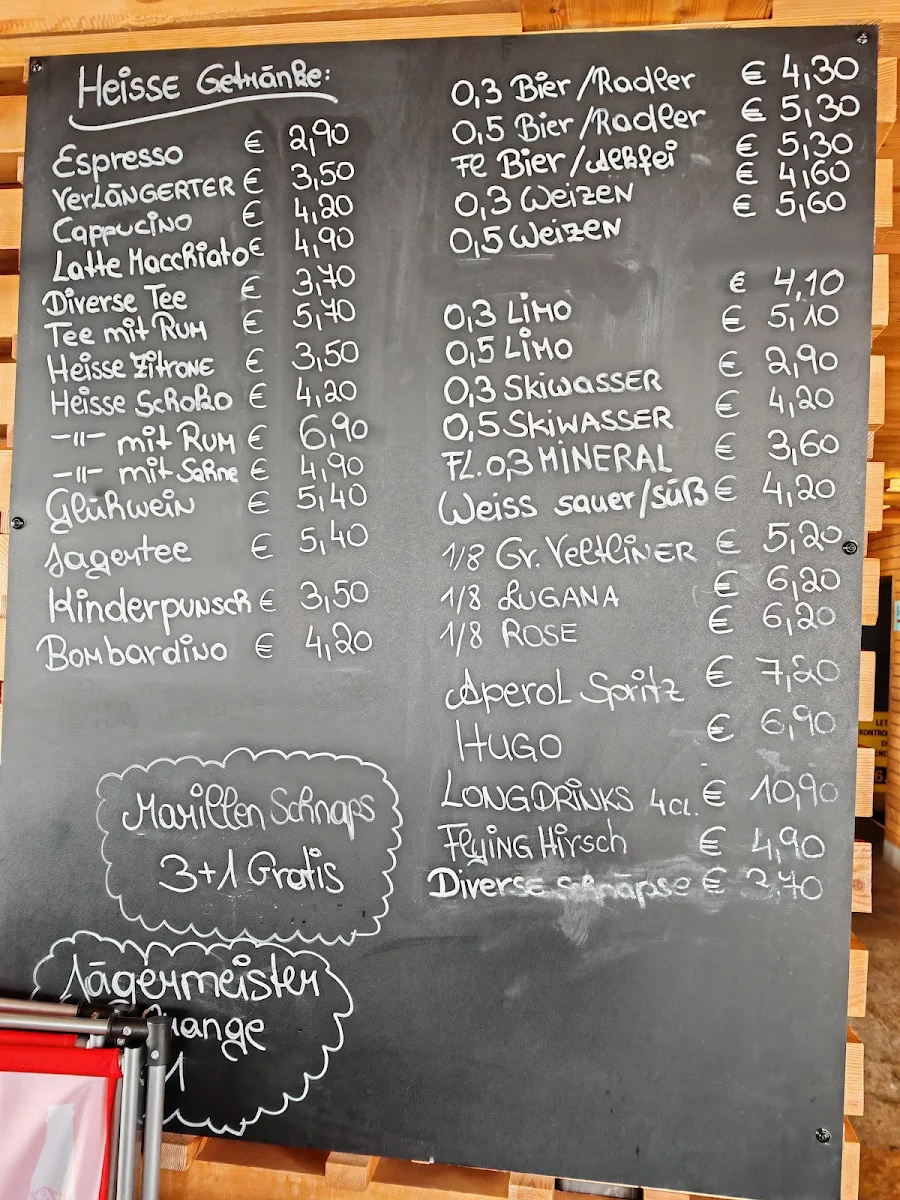 Heisse Getränke:
Espresso € 2,90
VERLÄNGERTER € 3,50
Cappucino € 4,20
Latte Macchiato € 4,90
Diverse Tee € 3,70
Tee mit RUM € 5,70
Heisse Zitrone € 3,50
Heisse Schoko € 4,20
-"- mit RUM € 6,90
-"- mit Sahne € 4,90
Glühwein € 5,40
Jagertee € 5,40
Kinderpunsch € 3,50
Bombardino € 4,20
Marillen Schnaps
3+1 Gratis
Jägermeister
1
0,3 Bier/Radler € 4,30
0,5 Bier/Radler € 5,30
Fl Bier/Alkfei € 5,30
0,3 Weizen € 4,60
0,5 Weizen € 5,60
0,3 LIMO € 4,10
0,5 LIMO € 5,10
0,3 SKIWASSER € 2,90
0,5 SKIWASSER € 4,20
FL. 0,3 MINERAL € 3,60
Weiss sauer/süß € 4,20
1/8 Gr. VELTLINER € 5,20
1/8 LUGANA € 6,20
1/8 ROSE € 6,20
Aperol Spritz € 7,20
HUGO € 6,90
LONGDRINKS 4cl. € 10,90
FLYING Hirsch € 4,90
Diverse Schnäpse € 3,70